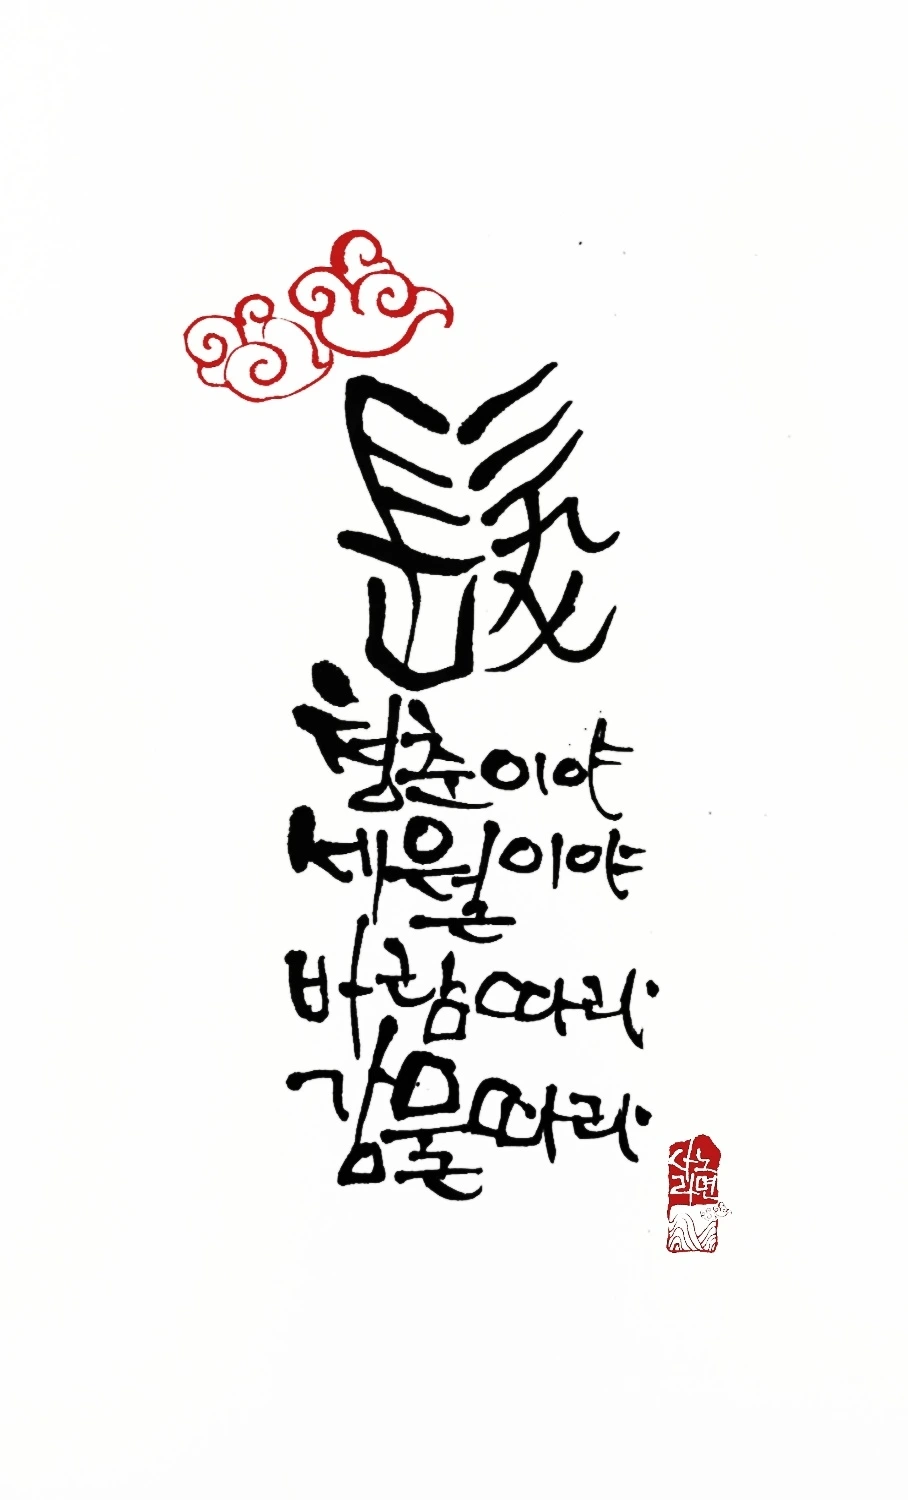 청춘이야
세월이야
바람따라
강물따라
사노
라면